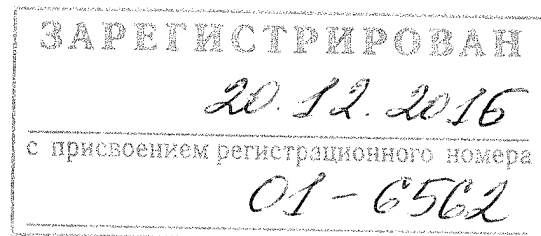 ЗАРЕГИСТРИРОВАН
20.12.2016
с присвоением регистрационного номера
01-6562